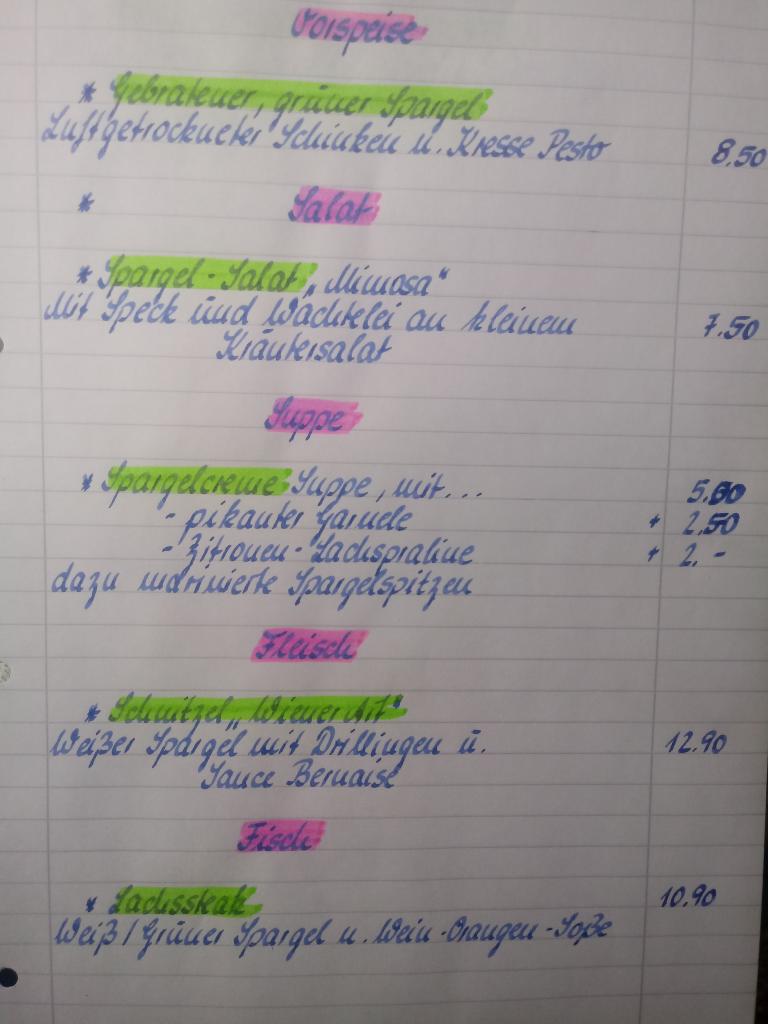 Vorspeise
* Gebratener, grüner Spargel
Luftgetrockneter Schinken u. Kresse Pesto 8.50
* Salat
* Spargel-Salat „Mimosa“
Mit Speck und Wachtelei an kleinem 7.50
Kräutersalat
Suppe
* Spargelcreme Suppe, mit...
- pikanter Garnele + 2.50
- Zitronen-Lachspraline + 2.-
dazu marinierte Spargelspitzen
Fleisch
* Schnitzel „Wiener Art“
Weißer Spargel mit Drillingen u. 12.90
Sauce Bernaise
Fisch
* Lachssteak 10.90
Weiß/Grüner Spargel u. Wein-Orangen-Soße